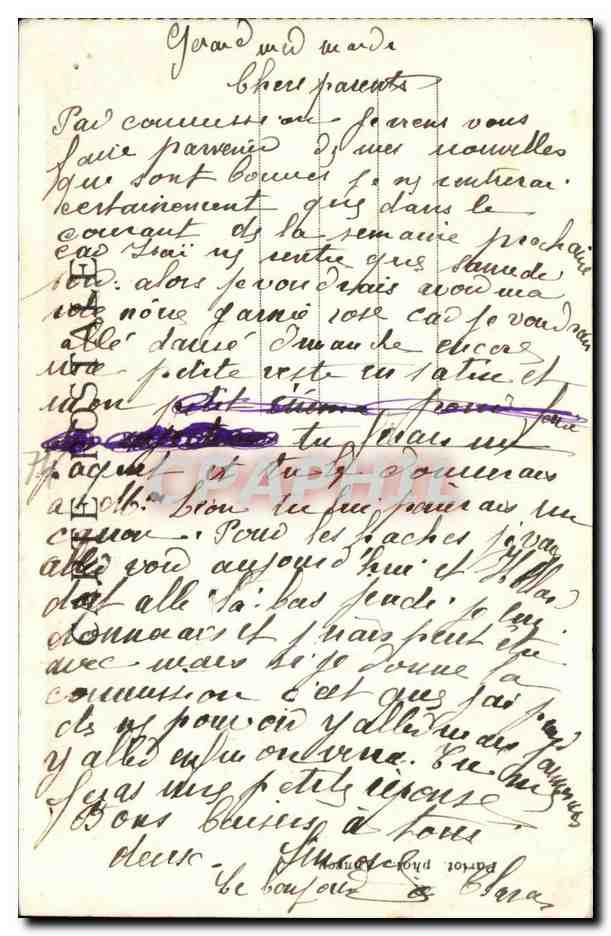 mardi
Chers parents
Par commission je viens vous
faire parvenir de mes nouvelles
que sont bonnes je ne rentrerai
certainement que dans le
courant de la semaine prochaine
car ne rentre que samedi
soir. alors je voudrais avoir ma
robe garnie rose car je voudrais
allé dansé dimanche encore
une petite veste en satin et
mon petit pour faire
tu ferais un
paquet et tu le donnerais
a Léon tu lui paierais un
canon. Pour les haches je vais
allé voir aujourd'hui et
doit allé là-bas jeudi je lui
donnerais et j'irais peut être
avec mais si je donne la
commission c'est que j'ai peur
de ne pouvoir y allé mais j'aimerais
y allé enfin on verra. Tu me
feras une petite réponse
Bons baisers à tous
deux.
Le bonjour à Clara
CARTE POSTALE
CPAPHIL